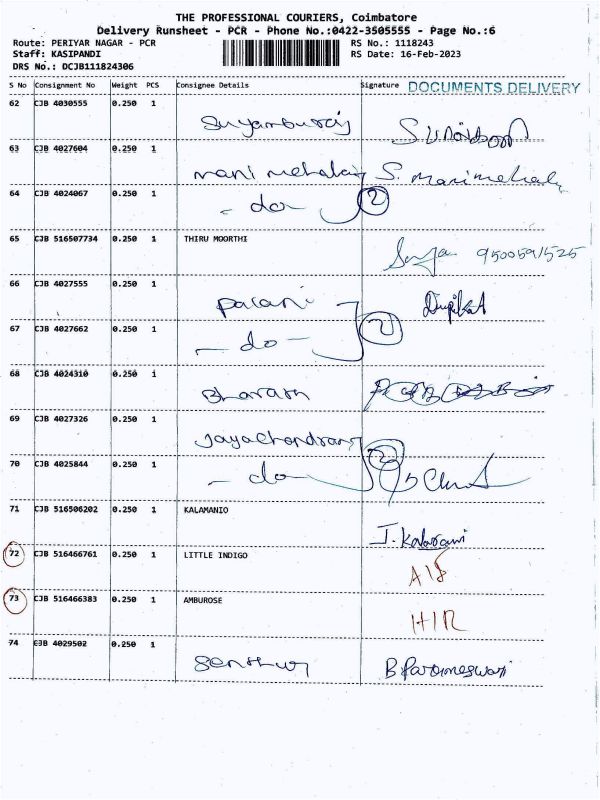 THE PROFESSIONAL COURIERS, Coimbatore
Delivery Runsheet - PCR - Phone No.:0422-3505555 - Page No.:6
Route: PERIYAR NAGAR - PCR RS No.: 1118243
Staff: KASIPANDI RS Date: 16-Feb-2023
DRS No.: DCJB111824306
S No Consignment No Weight PCS Consignee Details Signature DOCUMENTS DELIVERY
62 CJB 4030555 0.250 1
63 CJB 4027604 0.250 1
mani mehalai S. Manimehala
64 CJB 4024067 0.250 1
- do - 2
65 CJB 516507734 0.250 1 THIRU MOORTHI
9500591525
66 CJB 4027555 0.250 1
Palani
67 CJB 4027662 0.250 1
- do - 2
68 CJB 4024310 0.250 1
Bharath
69 CJB 4027326 0.250 1
Jayachandran
70 CJB 4025844 0.250 1
- do - 2
71 CJB 516506202 0.250 1 KALAMANIO
72 CJB 516466761 0.250 1 LITTLE INDIGO
73 CJB 516466383 0.250 1 AMBUROSE
74 CJB 4029502 0.250 1
B. Parameswari